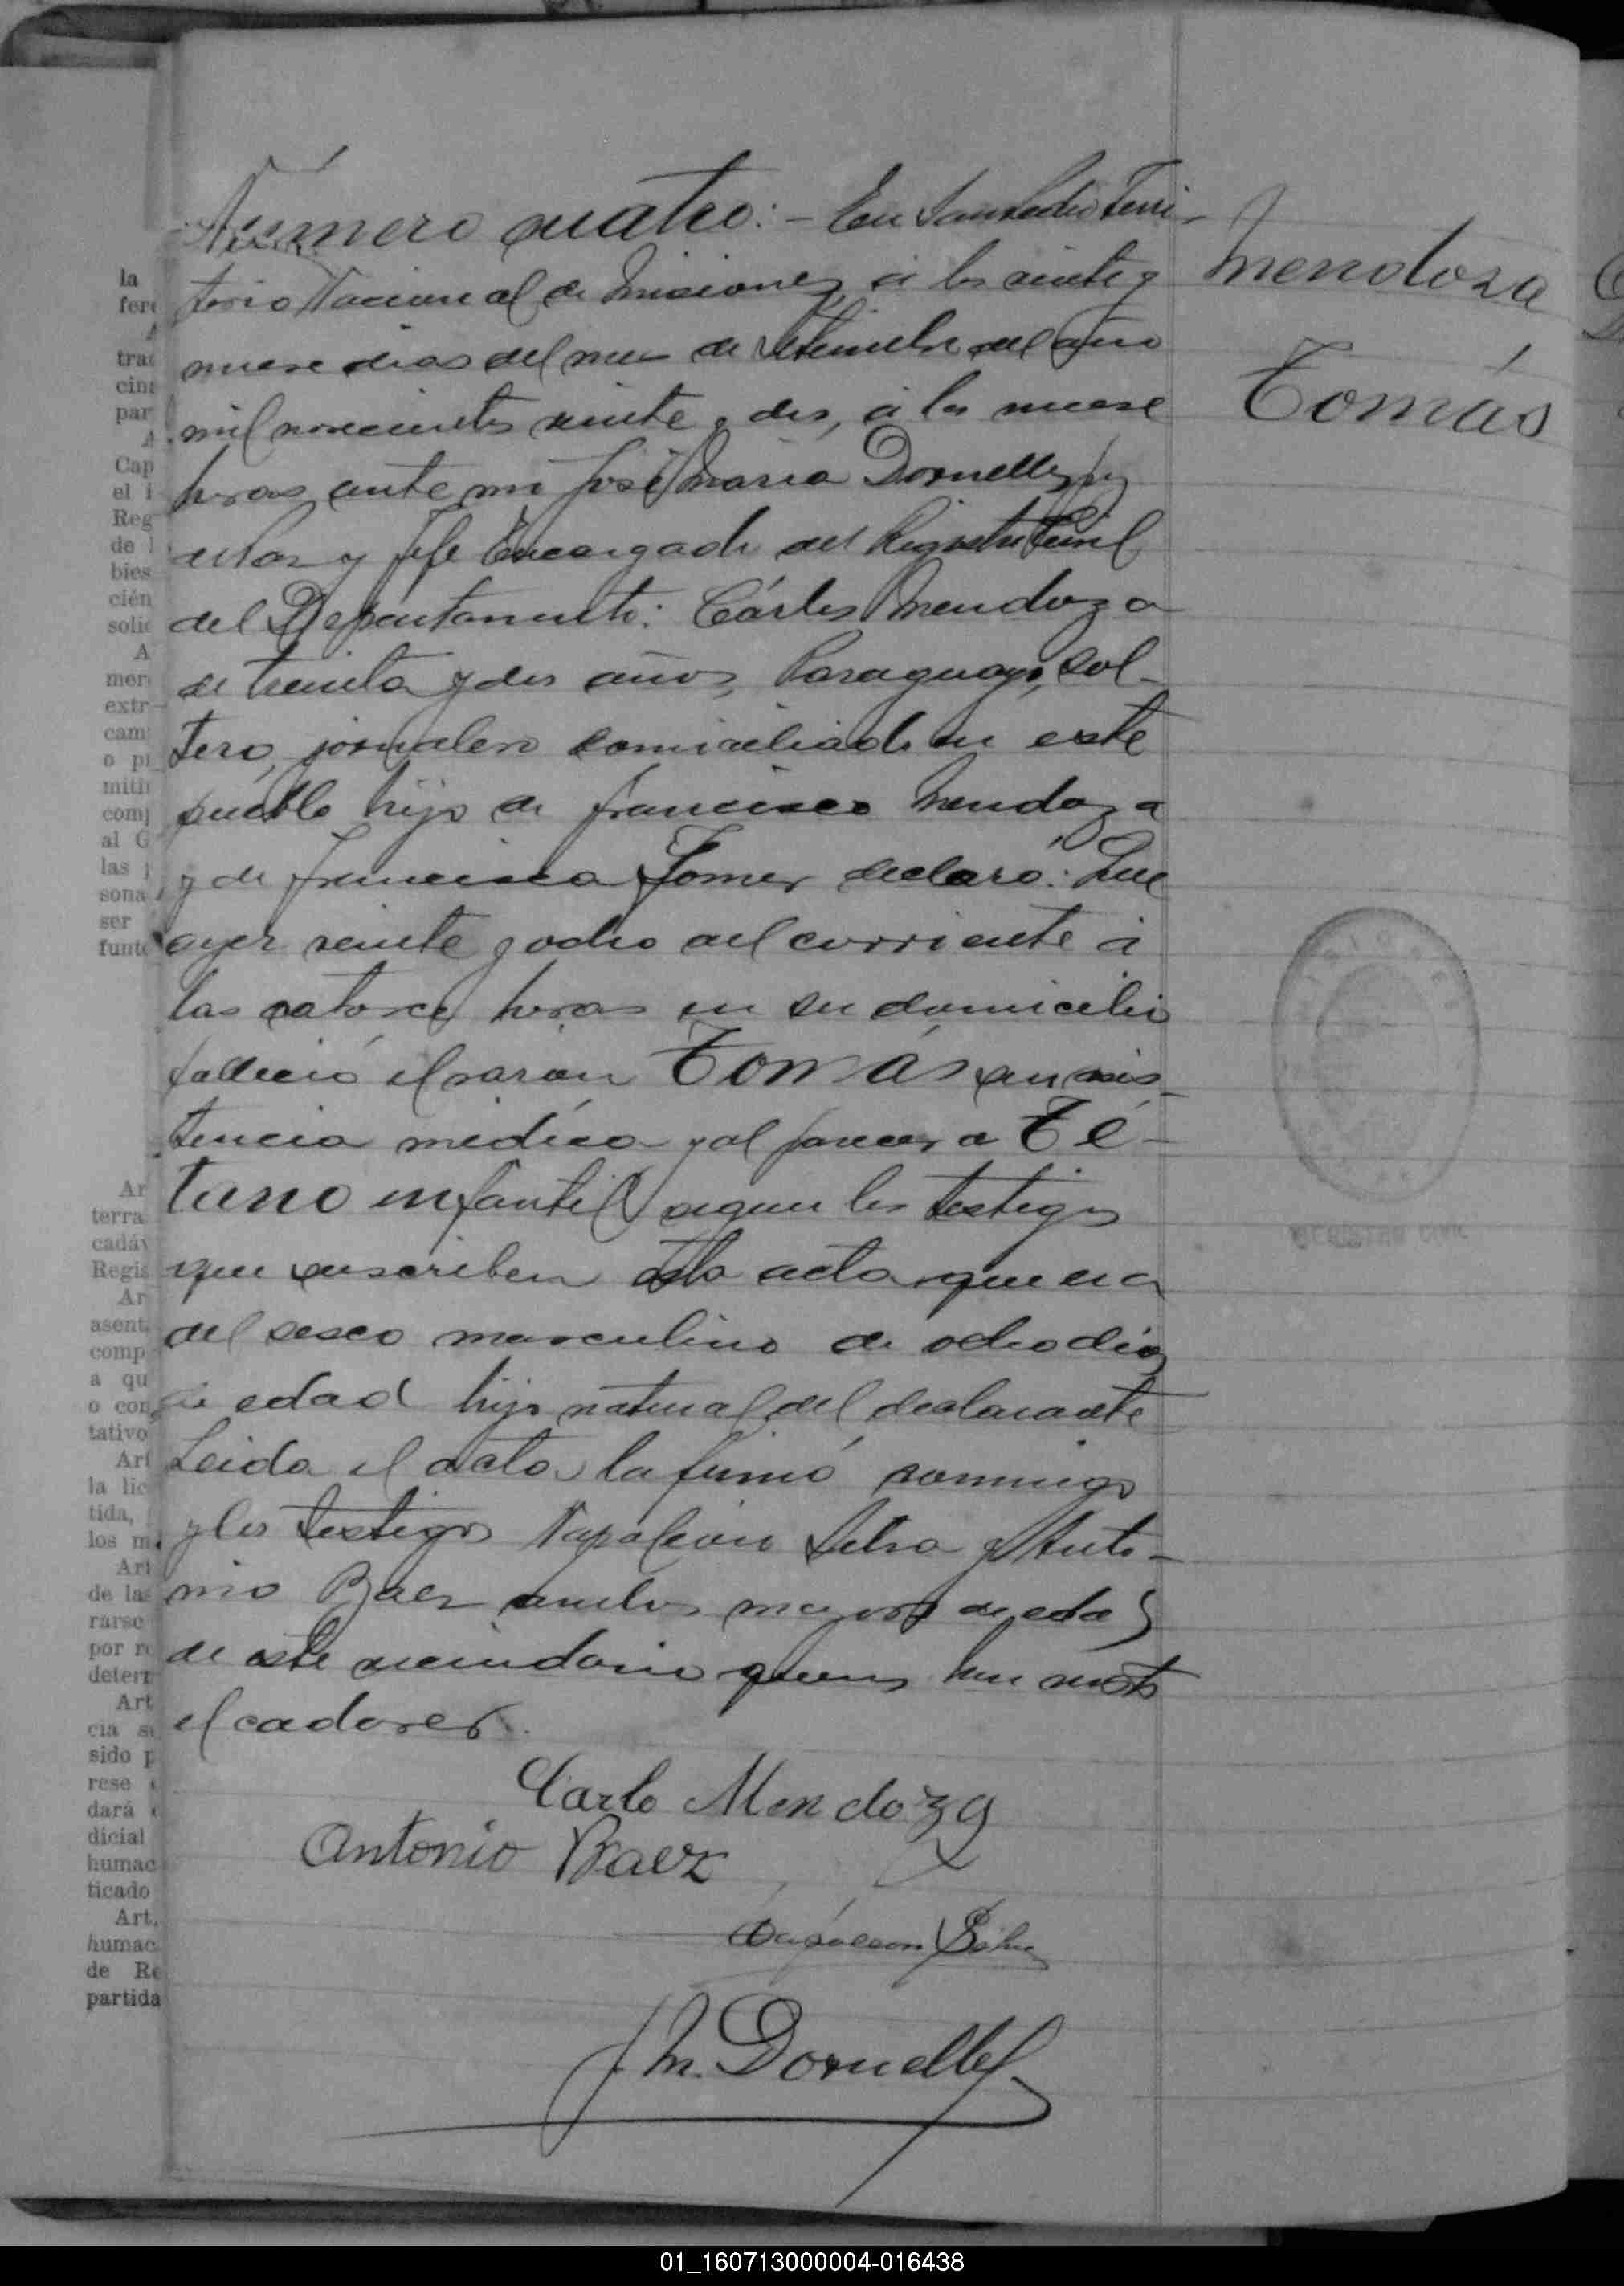 Número cuatro:- En San Pedro Terri-
torio Nacional de Misiones, á los veinte y
nueve dias del mes de Setiembre del año
mil novecientos veinte y dos, á las nueve
horas, ante mi José Maria Dornelles Juez
de Paz y Jefe Encargado del Registro Civil
del Departamento: Cárlos Mendoza
de treinta y dos años, Paraguayo, sol-
tero, jornalero domiciliado en este
pueblo hijo de Francisco Mendoza
y de Francisca declaró: Que
ayer veinte y ocho del corriente á
las catorce horas en su domicilio
falleció el varon Tomás sin asis-
tencia médica y al parecer a Té-
tano infantil segun los testigos
que suscriben esta acta que era
del sexo masculino de ocho dias
de edad hijo natural del declarante
Leida el acta la firmó conmigo
y los testigos Napoleón Silva y Anto-
nio Baez ambos mayores de edad
de este vecindario quienes han visto
el cadaver.
Carlo Mendoza
Antonio Baez
Napoleon Silva
J. M. Dornelles
Mendoza
Tomás
MISIONES
REGISTRO CIVIL
la
fere
trac
cina
par
A
Cap
el i
Reg
de l
bies
cién
solic
A
mer
extr
cam
o pi
miti
comp
al G
las
sona
ser
funt
Ar
terra
cadáv
Regis
Ar
asent
comp
a qu
o con
tativo
Art
la lic
tida,
los m
Art
de las
rarse
por re
deter
Art
cia s
sido p
rese
dará
dicial
humac
ticado
Art.
humac
de Re
partida
01_160713000004-016438